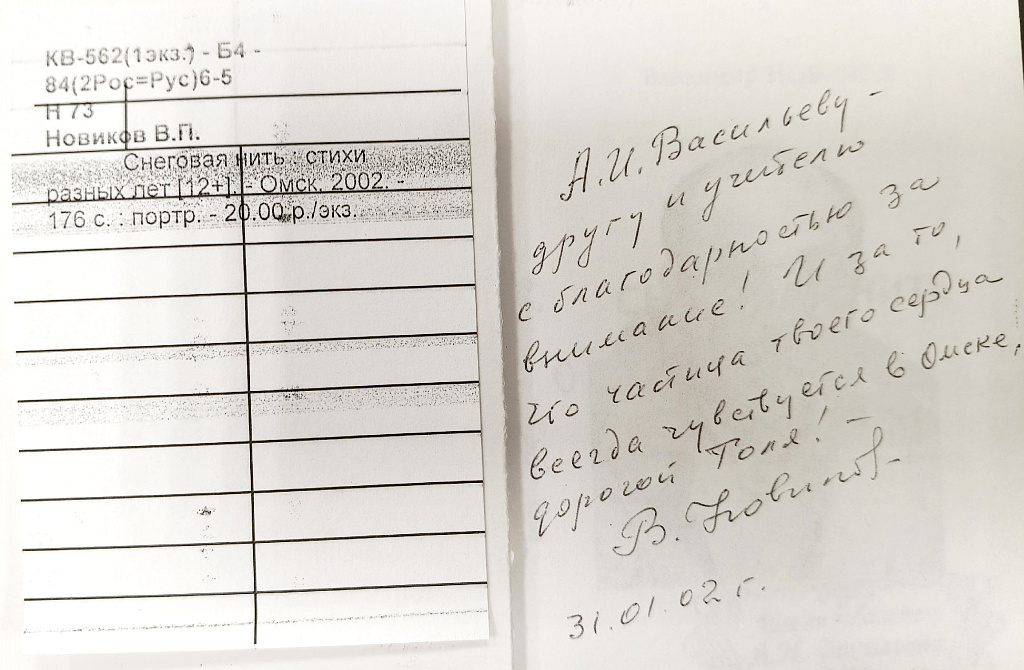 КВ-562(1экз.) - Б4 -
84(2Рос=Рус)6-5
Н 73
Новиков В.П.
Снеговая нить : стихи
разных лет [12+]. - Омск. 2002. -
176 с. : портр. - 20.00 р./экз.
А.И. Васильеву -
другу и учителю
с благодарностью за
внимание! И за то,
что частица твоего сердца
всегда чувствуется в Омске,
дорогой Толя! -
В. Новиков
31.01.02 г.